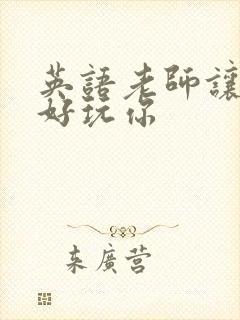 英語老師讓
好玩你
来廣营